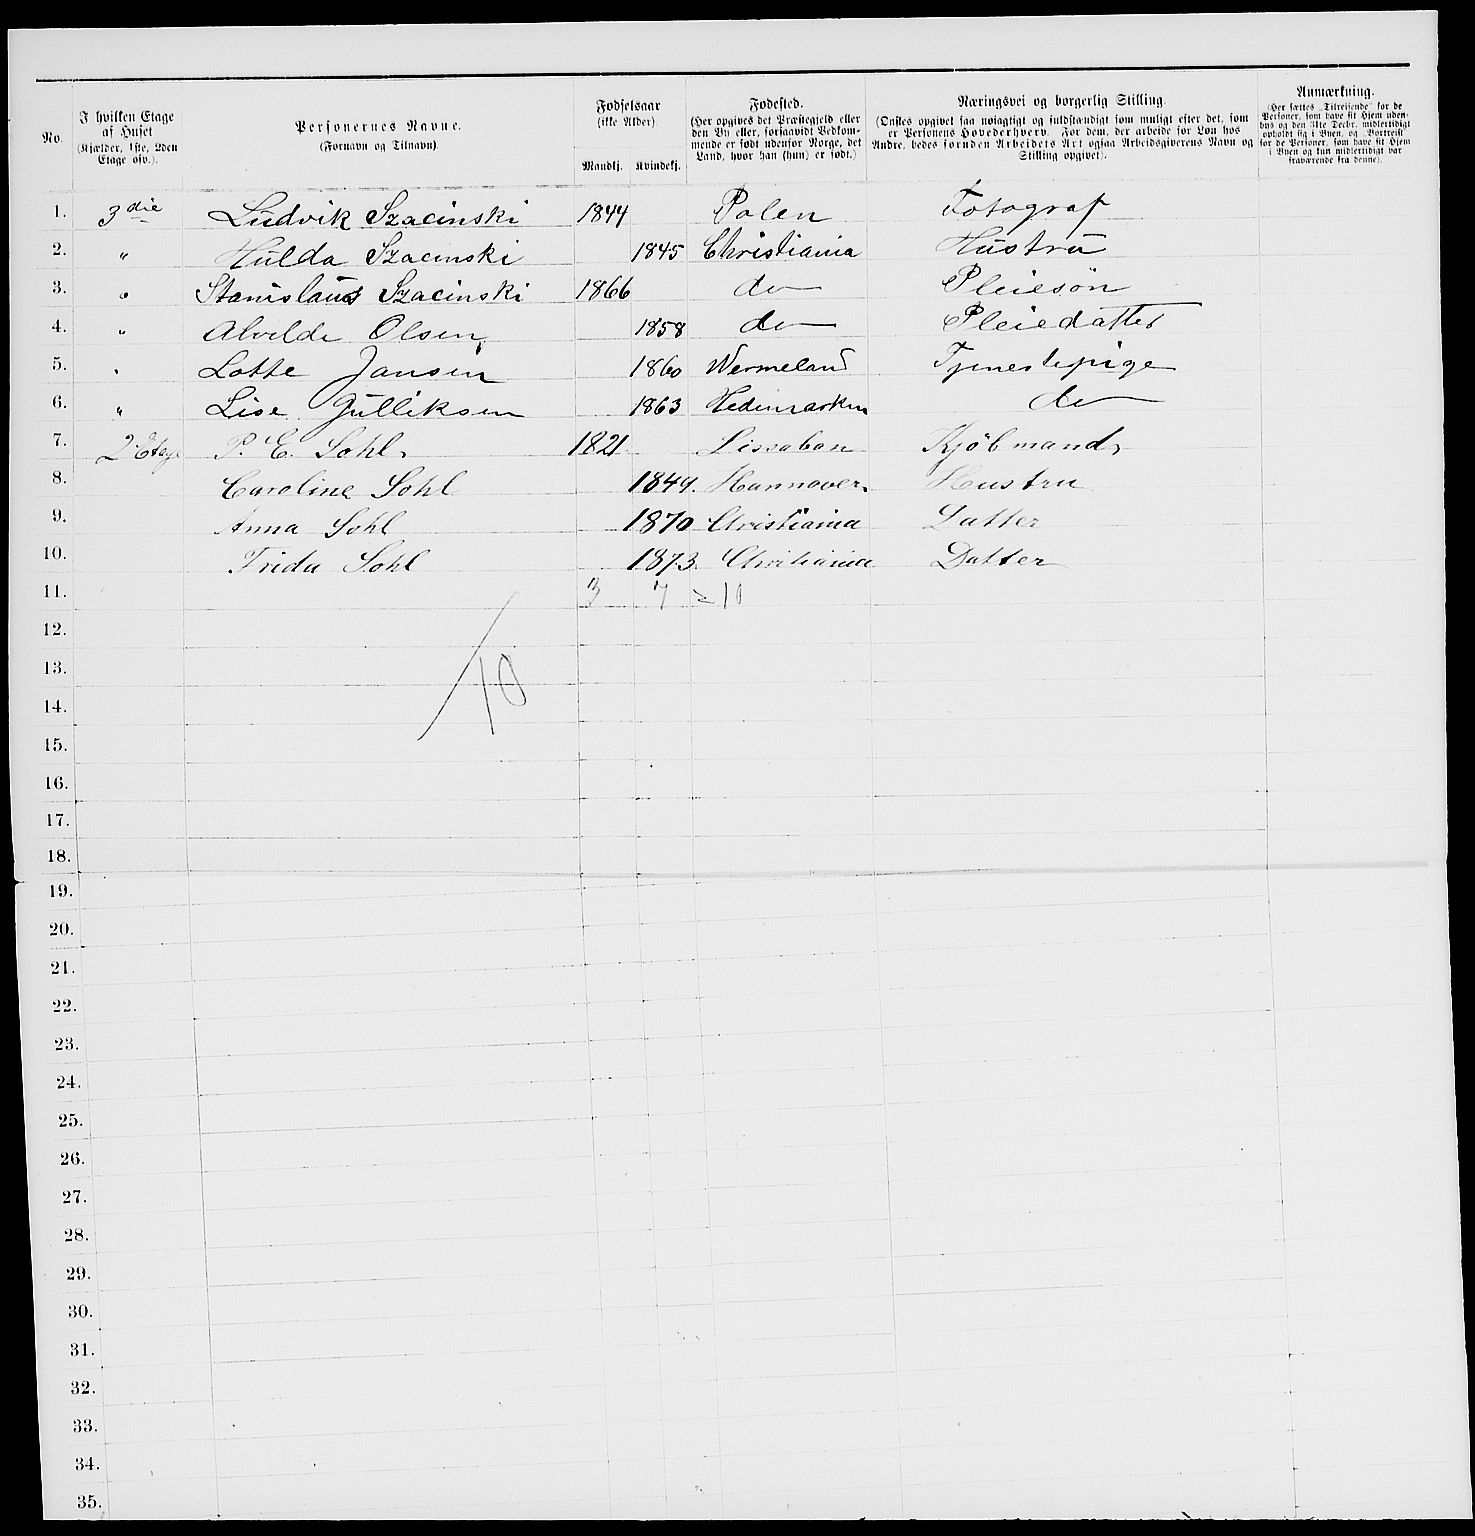 No.
I hvilken Etage
af Huset
(Kjælder, 1ste, 2den
Etage osv.).
Personernes Navne.
(Fornavn og Tilnavn)
Fødselsaar
(ikke Alder)
Mandkj.
Kvindekj.
Fødested.
(Her opgives det Præstegjeld eller
den By eller, forsaavidt Vedkom-
mende er født udenfor Norge, det
Land, hvor han (hun) er født.)
Næringsvei og borgerlig Stilling
(Ønskes opgivet saa nøiagtigt og fuldstændigt som muligt efter det, som
er Personens Hovederhverv. For dem, der arbeide for Løn hos
Andre, bedes foruden Arbeidets Art ogsaa Arbeidsgiverens Navn og
Stilling opgivet).
Anmærkning.
(Her sættes „Tilreisende" for de
Personer, som have sit Hjem uden-
bys og den 31te Decbr. midlertidigt
opholdt sig i Byen, og „Bortreist"
for de Personer, som have sit Hjem
i Byen og kun midlertidigt var
fraværende fra denne).
1. 3die Ludvik Szacinski 1844 Polen Fotograf
2. " Hulda Szacinski 1845 Christiania Hustru
3. " Stanislaus Szacinski 1866 do Pleiesön
4. " Alvilde Olsen 1858 do Pleiedatter
5. " Lotte Jansen 1860 Wermeland Tjenestepige
6. " Lise Gulliksen 1863 Hedemarken do
7. 2 Etage P. E. Sohl. 1821 Lissabon Kjöbmand
8. Caroline Sohl 1849. Hannover. Hustru
9. Anna Sohl 1870 Christiania Datter
10. Frida Sohl 1873. Christiania Datter
11. 3 7 = 10
12.
13. 10
14.
15.
16.
17.
18.
19.
20.
21.
22.
23.
24.
25.
26.
27.
28.
29.
30.
31.
32.
33.
34.
35.